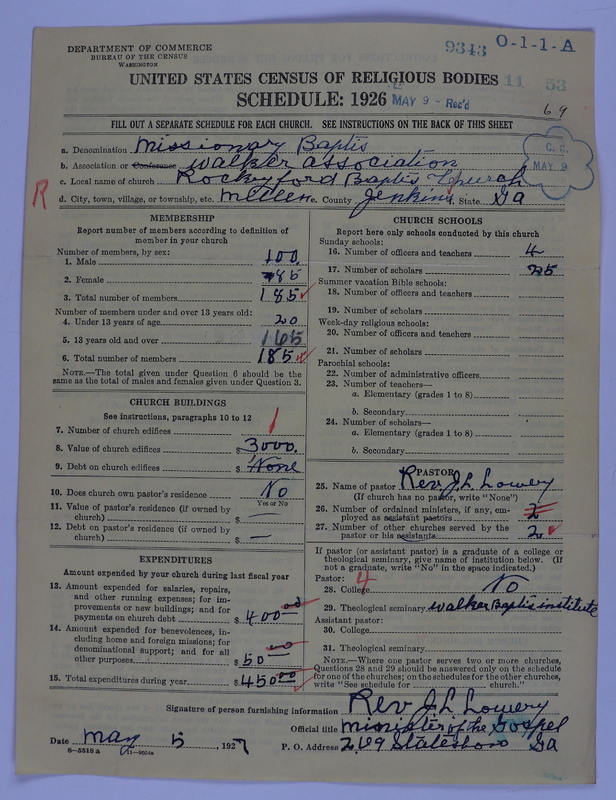 DEPARTMENT OF COMMERCE
BUREAU OF THE CENSUS
WASHINGTON
9343 O-1-1-A
UNITED STATES CENSUS OF RELIGIOUS BODIES
11 53
SCHEDULE: 1926 MAY 9 - Rec'd
69
FILL OUT A SEPARATE SCHEDULE FOR EACH CHURCH. SEE INSTRUCTIONS ON THE BACK OF THIS SHEET
a. Denomination Missionary Baptis
b. Association or Conference Walker association
C. S. MAY 9
c. Local name of church Rockeyford Baptis Church
R
d. City, town, village, or township, etc. Millen e. County Jenkins f. State Ga
MEMBERSHIP
Report number of members according to definition of
member in your church
Number of members, by sex:
1. Male 100
2. Female 85
3. Total number of members 185
Number of members under and over 13 years old:
4. Under 13 years of age 20
5. 13 years old and over 165
6. Total number of members 185
NOTE.—The total given under Question 6 should be the
same as the total of males and females given under Question 3.
CHURCH BUILDINGS
See instructions, paragraphs 10 to 12
7. Number of church edifices 1
8. Value of church edifices $ 3000.
9. Debt on church edifices $ None
10. Does church own pastor's residence No
Yes or No
11. Value of pastor's residence (if owned by
church) $ —
12. Debt on pastor's residence (if owned by
church) $ —
EXPENDITURES
Amount expended by your church during last fiscal year
13. Amount expended for salaries, repairs,
and other running expenses; for im-
provements or new buildings; and for
payments on church debt $ 400 00
14. Amount expended for benevolences, in-
cluding home and foreign missions; for
denominational support; and for all
other purposes $ 50 00
15. Total expenditures during year $ 450 00
CHURCH SCHOOLS
Report here only schools conducted by this church
Sunday schools:
16. Number of officers and teachers 4
17. Number of scholars 25
Summer vacation Bible schools:
18. Number of officers and teachers
19. Number of scholars
Week-day religious schools:
20. Number of officers and teachers
21. Number of scholars
Parochial schools:
22. Number of administrative officers
23. Number of teachers—
a. Elementary (grades 1 to 8)
b. Secondary
24. Number of scholars—
a. Elementary (grades 1 to 8)
b. Secondary
PASTOR
25. Name of pastor Rev. J. L. Lowery
(If church has no pastor, write "None")
26. Number of ordained ministers, if any, em-
ployed as assistant pastors 2
27. Number of other churches served by the
pastor or his assistants 2
If pastor (or assistant pastor) is a graduate of a college or
theological seminary, give name of institution below. (If
not a graduate, write "No" in the space indicated.)
Pastor: 4
28. College No
29. Theological seminary Walker Baptis institute
Assistant pastor:
30. College
31. Theological seminary
NOTE.—Where one pastor serves two or more churches,
Questions 28 and 29 should be answered only on the schedule
for one of the churches; on the schedules for the other churches,
write "See schedule for ............ church."
Signature of person furnishing information Rev J. L. Lowery
Official title minister of the Gospel
Date May 5, 1927 P. O. Address Statesboro Ga
8-5518 a 11-9504a